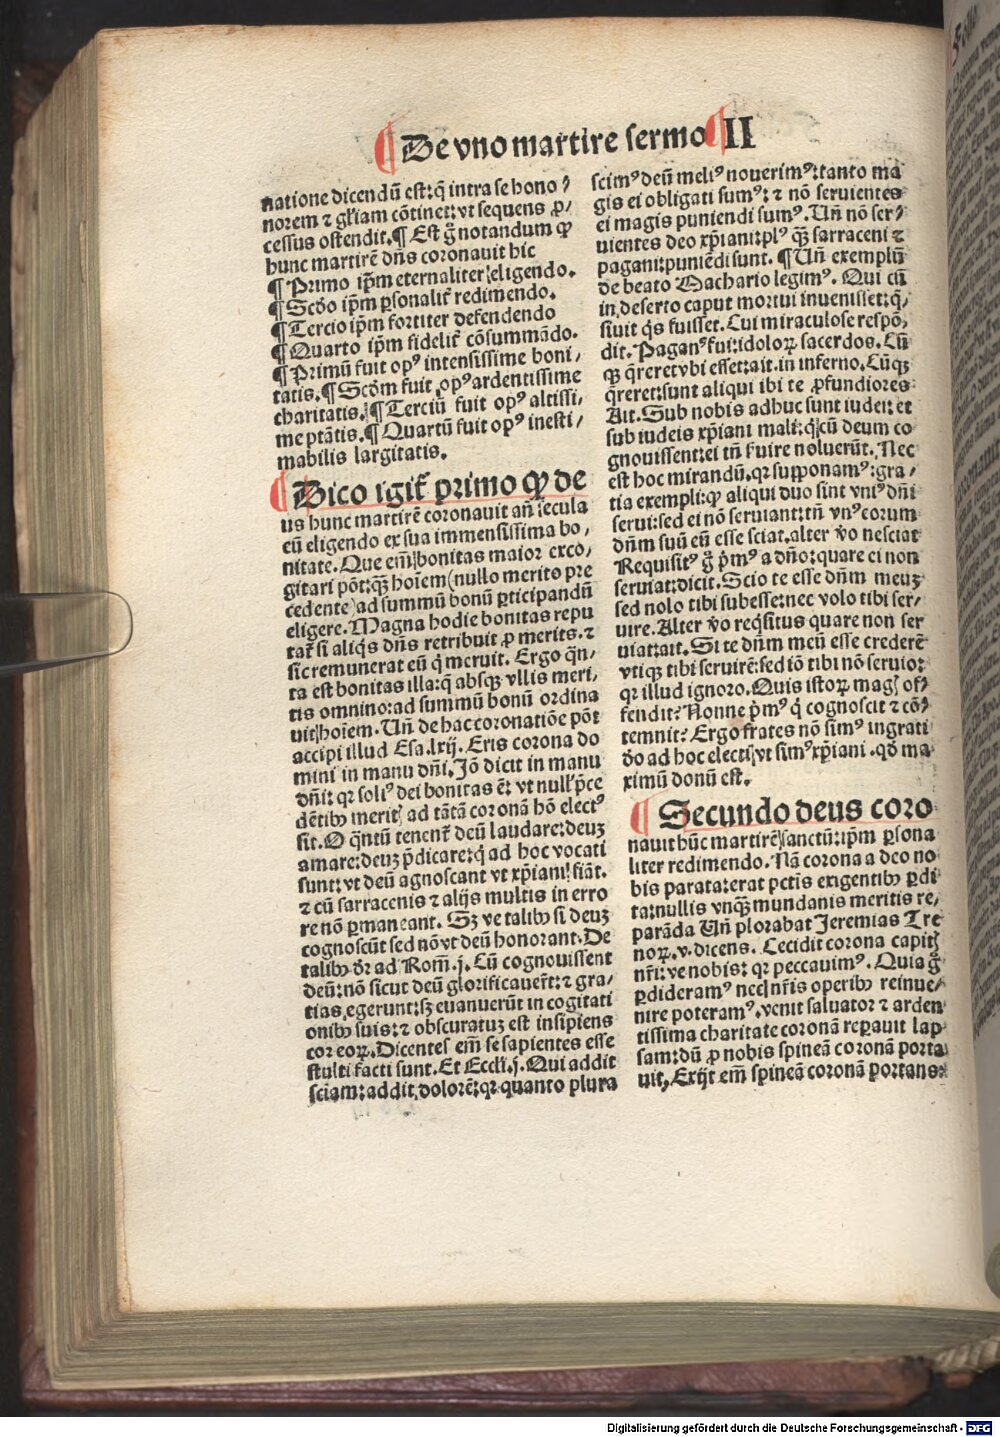 ¶ De vno martire sermo ¶ II
natione dicendū est: q̄ intra se hono⸗
norem ⁊ gl̄iam cōtinet: vt sequens ꝓ⸗
cessus ostendit. ¶ Est g̊ notandum ꝙ
hunc martirē dn̄s coronauit hic
¶ Primo ip̄m eternaliter eligendo.
¶ Scd̓o ip̄m ꝑsonalit̓ redimendo.
¶ Tercio ip̄m fortiter defendendo
¶ Quarto ip̄m fidelit̓ cōsummādo.
¶ Primū fuit opꝰ intensissime boni⸗
tatis. ¶ Scd̓m fuit opꝰ ardentissime
charitatis. ¶ Terciū fuit opꝰ altissi⸗
me ptātis. ¶ Quartū fuit opꝰ inesti⸗
mabilis largitatis.
¶ Dico igit̓ primo ꝙ de
us hunc martirē coronauit an̄ secula
eū eligendo ex sua immensissima bo⸗
nitate. Que em̄ bonitas maior exco⸗
gitari pōt: qꝫ̄ hoīem (nullo merito pre
cedente) ad summū bonū ꝑticipandū
eligere. Magna hodie bonitas repu
tat̓ si aliqs̄ dn̄s retribuit ꝓ merits. ⁊
sic remunerat eū q̇ meruit. Ergo q̄n⸗
ta est bonitas illa: q̄ absqꝫ vllis meri⸗
tis omnino: ad summū bonū ordina
uit hoīem. Un̄ de hac coronatiōe pōt
accipi illud Esa. lxij. Eris corona do
mini in manu dn̄i. Iō dicit in manu
dn̄i: qꝛ soliꝰ dei bonitas ē: vt nullꝭ p̄ce
dētibꝫ meritꝭ ad tātā coronā hō electꝰ
sit. O q̄ntū tenent̓ deū laudare: deuꝫ
amare: deuꝫ p̄dicare: q̇ ad hoc vocati
sunt: vt deū agnoscant vt xp̄iani fiāt.
⁊ cū sarracenis ⁊ alijs multis in erro
re nō ꝑmaneant. Sꝫ ve talibꝫ si deuꝫ
cognoscūt sed nō vt deū honorant. De
talibꝫ dr̄ ad Rom̄. j. Cū cognouissent
deū: nō sicut deū glorificauer̄t: ⁊ gra⸗
tias egerunt: sꝫ euanuerūt in cogitati
onibꝫ suis: ⁊ obscuratuꝫ est insipiens
cor eoꝝ. Dicentes em̄ se sapientes esse
stulti facti sunt. Et Eccl̓i. j. Qui addit
sciam: addit dolorē: qꝛ quanto plura
scimꝰ deū meliꝰ nouerimꝰ: tanto ma
gis ei obligati sumꝰ: ⁊ nō seruientes
ei magis puniendi sumꝰ. Un̄ nō ser⸗
uientes deo xp̄iani: plꝰ qꝫ̄ sarraceni ⁊
pagani: puniēdi sunt. ¶ Un̄ exemplū
de beato Machario legimꝰ. Qui cū
in deserto caput mortui inuenisset: q̄⸗
siuit q̇s fuisset. Cui miraculose respō⸗
dit. Paganꝰ fui: idoloꝝ sacerdos. Cū
qꝫ q̄reret vbi esset: ait. in inferno. Cūqꝫ
q̄reret: sunt aliqui ibi te ꝓfundiores
Ait. Sub nobis adhuc sunt iudei: et
sub iudeis xp̄iani mali: q̇ cū deum co
gnouissent: ei tn̄ s̓uire noluerūt. Nec
est hoc mirandū. qꝛ supponamꝰ: gra⸗
tia exempli: ꝙ aliqui duo sint vniꝰ dn̄i
serui: sed ei nō seruiant: tn̄ vnꝰ eorum
dn̄m suū eū esse sciat. alter v̓o nesciat
Requisitꝰ g̊ p̄mꝰ a dn̄o: quare ei non
seruiat: dicit. Scio te esse dn̄m meuꝫ
sed nolo tibi subesse: nec volo tibi ser⸗
uire. Alter v̓o reqͥsitus quare non ser
uiat: ait. Si te dn̄m meū esse crederē
vtiqꝫ tibi seruirē: sed iō tibi nō seruio:
qꝛ illud ignoro. Quis istoꝝ magꝭ of⸗
fendit? Nonne p̄mꝰ q̇ cognoscit ⁊ cō⸗
temnit? Ergo frates nō simꝰ ingrati
d̓o ad hoc electi vt simꝰ xp̄iani. qd̓ ma
ximū donū est.
¶ Secundo deus coro
nauit hūc martirē sanctū: ip̄m ꝑsona
liter redimendo. Nā corona a deo no
bis parata: erat pctīs exigentibꝫ ꝑdi
ta: nullis vnqꝫ̄ mundanis meritis re⸗
parāda Un̄ plorabat Jeremias Tre
noꝝ. v. dicens. Cecidit corona capitꝭ
nr̄i: ve nobis: qꝛ peccauimꝰ. Quia g̊
ꝑdideramꝰ nec nr̄is operibꝫ reinue⸗
nire poteramꝰ. venit saluator ⁊ arden
tissima charitate coronā reꝑauit lap⸗
sam: dū ꝓ nobis spineā coronā porta
uit, Exijt em̄ spineā coronā portans:
Digitalisierung gefördert durch die Deutsche Forschungsgemeinschaft - DFG